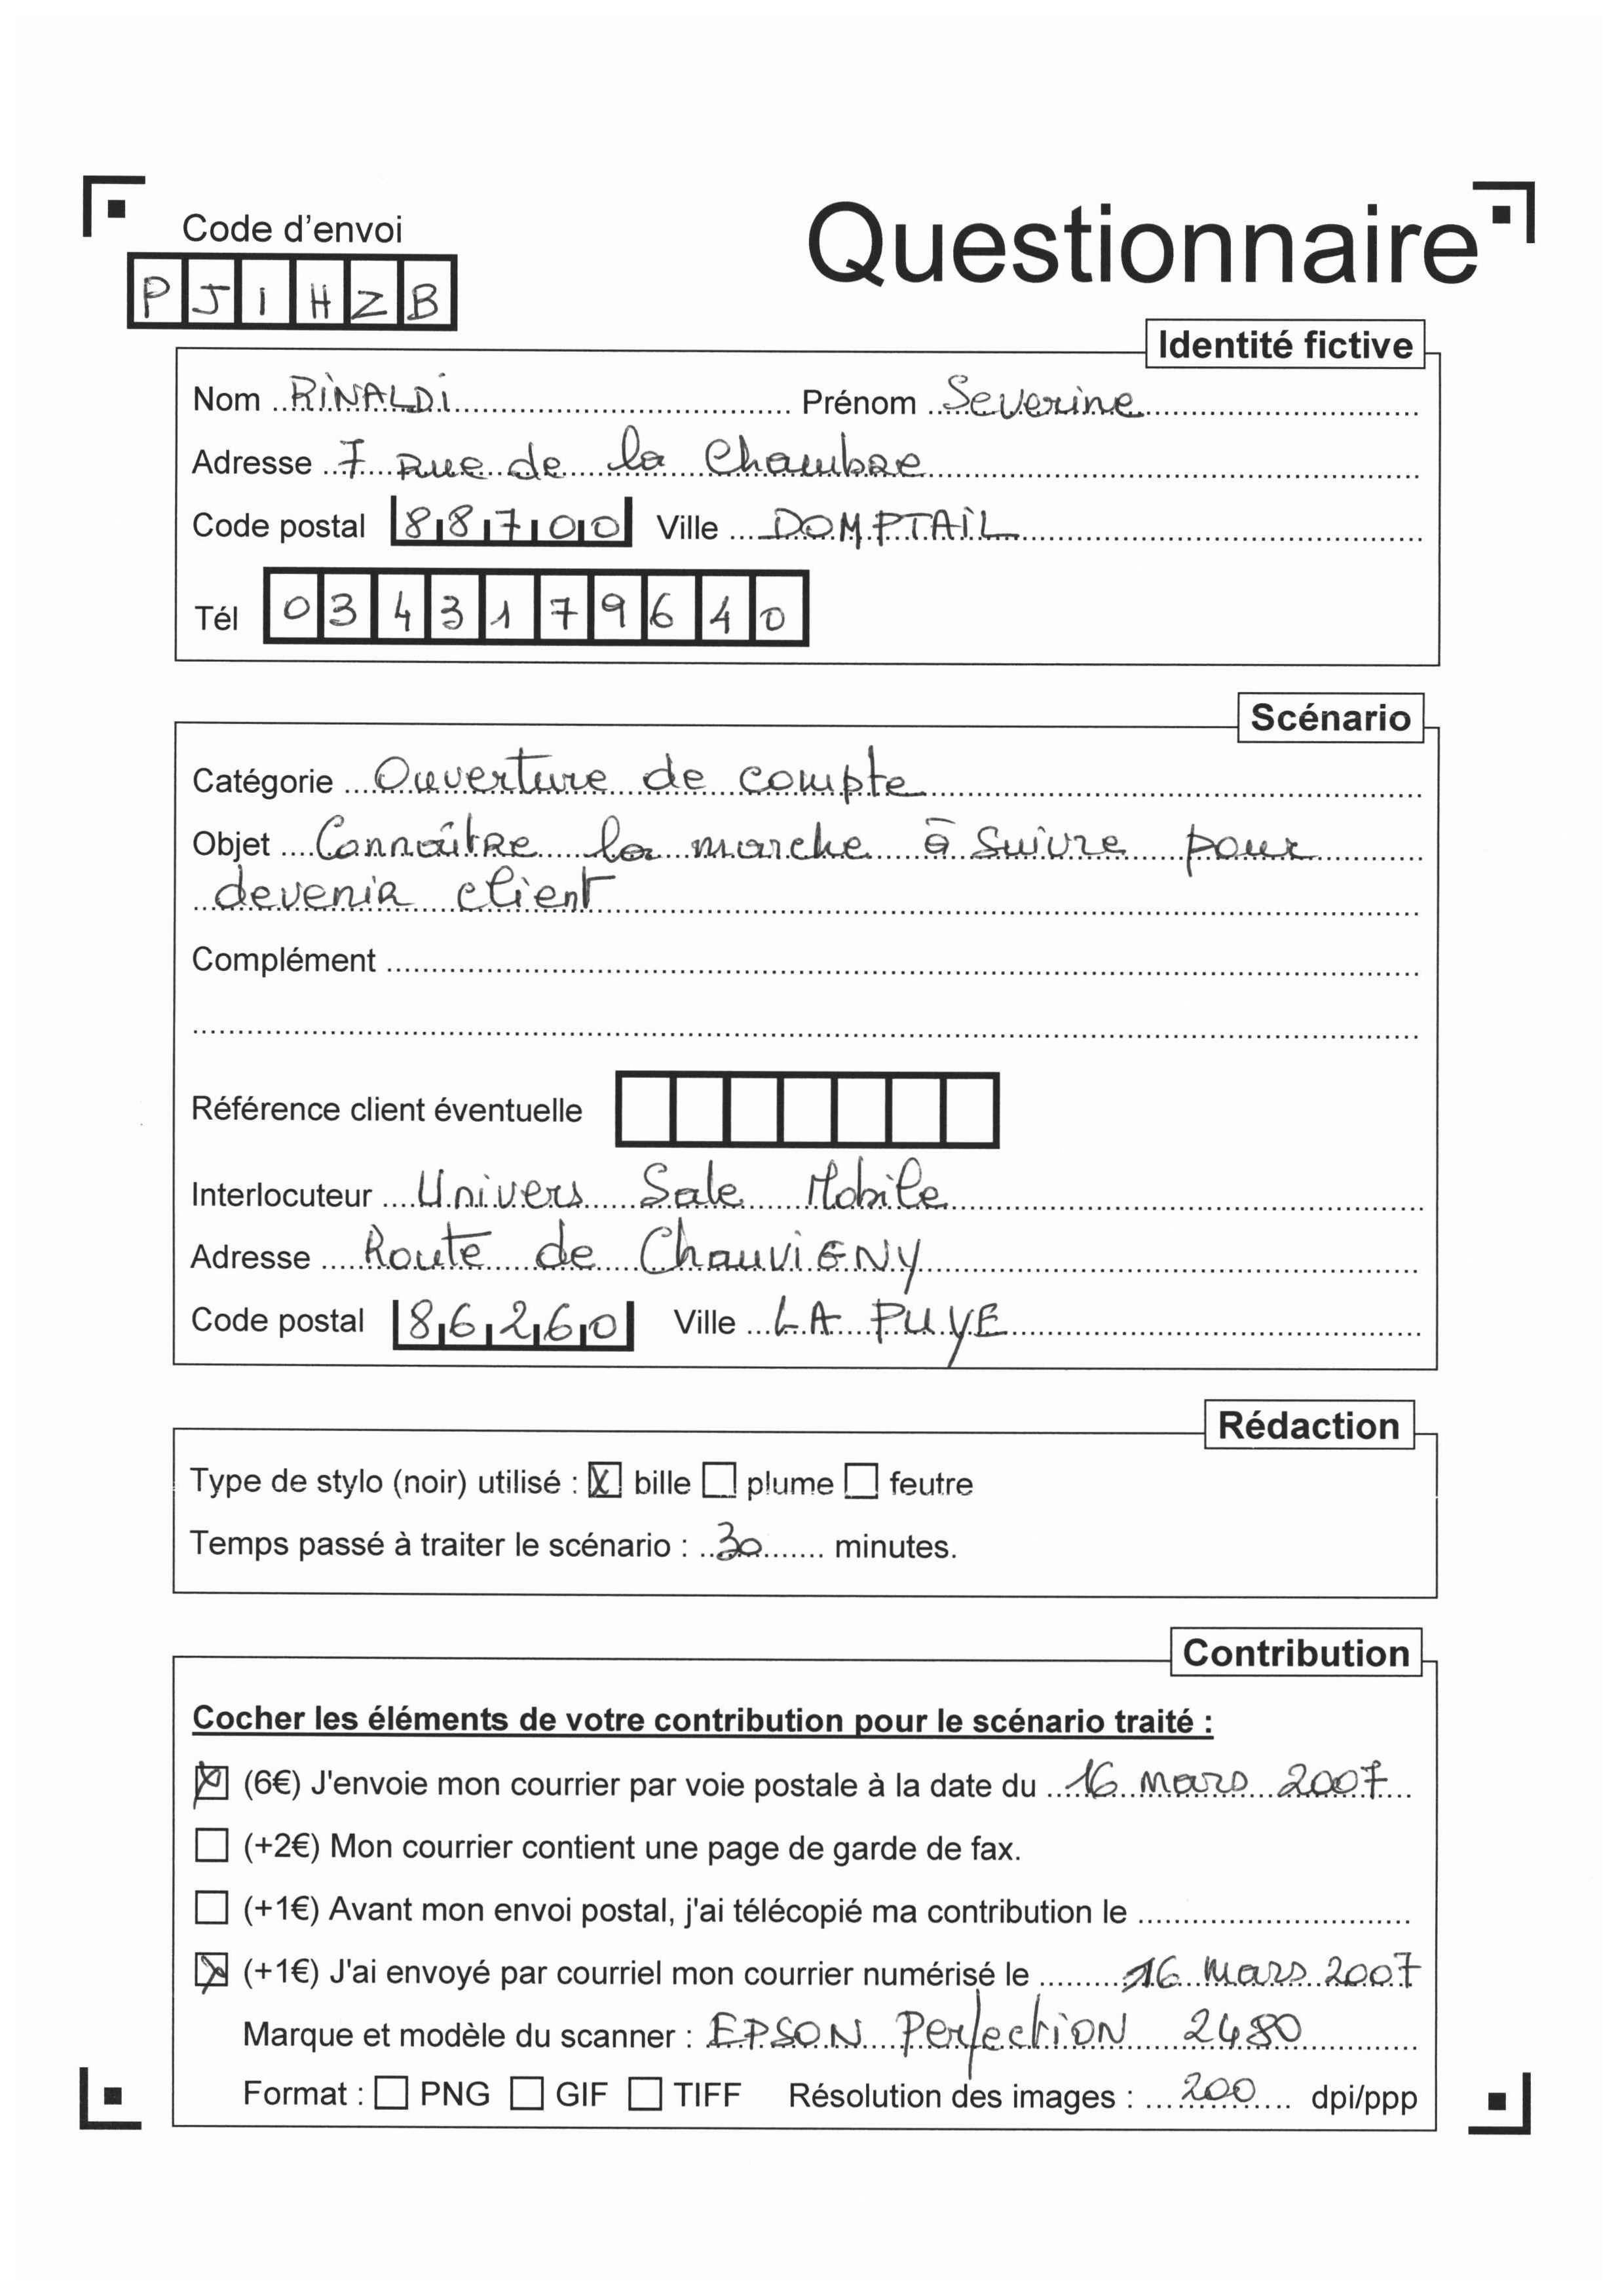 Code d'envoi
Questionnaire
PJIHZB
Identité fictive
Nom RINALDI Prénom Severine
Adresse 7 Rue de la Chambre
Code postal 88700 Ville DOMPTAIL
Tél 0343179640
Scénario
Catégorie Ouverture de compte
Objet Connaître la marche à suivre pour
devenir client
Complément
Référence client éventuelle
Interlocuteur Univers Sale Mobile
Adresse Route de Chauvigny
Code postal 86260 Ville LA PUYE
Rédaction
Type de stylo (noir) utilisé : ☒ bille ☐ plume ☐ feutre
Temps passé à traiter le scénario : 30 minutes.
Contribution
Cocher les éléments de votre contribution pour le scénario traité :
☒ (6€) J'envoie mon courrier par voie postale à la date du 16 mars 2007
☐ (+2€) Mon courrier contient une page de garde de fax.
☐ (+1€) Avant mon envoi postal, j'ai télécopié ma contribution le
☒ (+1€) J'ai envoyé par courriel mon courrier numérisé le 16 mars 2007
Marque et modèle du scanner : EPSON Perfection 2480
Format : ☐ PNG ☐ GIF ☐ TIFF Résolution des images : 200 dpi/ppp